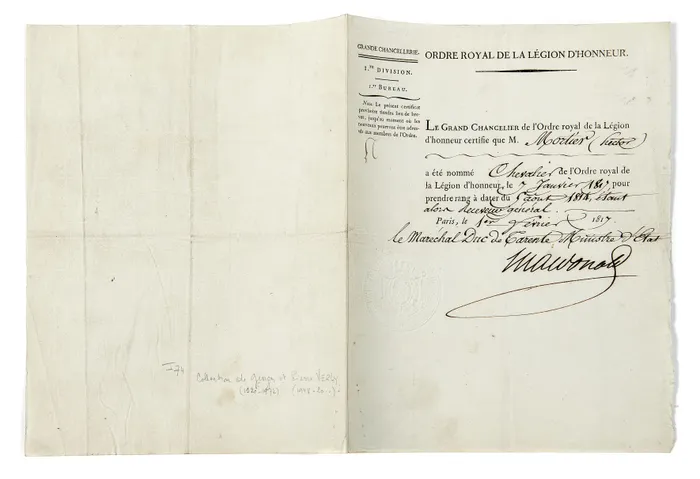 GRANDE CHANCELLERIE.
1.re DIVISION.
1.er BUREAU.
Nota. Le présent certificat
provisoire tiendra lieu de bre-
vet, jusqu'au moment où les
nouveaux pourront être adres-
sés aux membres de l'Ordre.
ORDRE ROYAL DE LA LÉGION D'HONNEUR.
LE GRAND CHANCELIER de l'Ordre royal de la Légion
d'honneur certifie que M. Morlier (hector
a été nommé Chevalier de l'Ordre royal de
la Légion d'honneur, le 7 Janvier pour
prendre rang à dater du août 1814, étant
alors Receveur général.
Paris, le 1er février 1817.
le Maréchal Duc de Tarente Ministre d'Etat
Macdonald
Collection de et Pierre